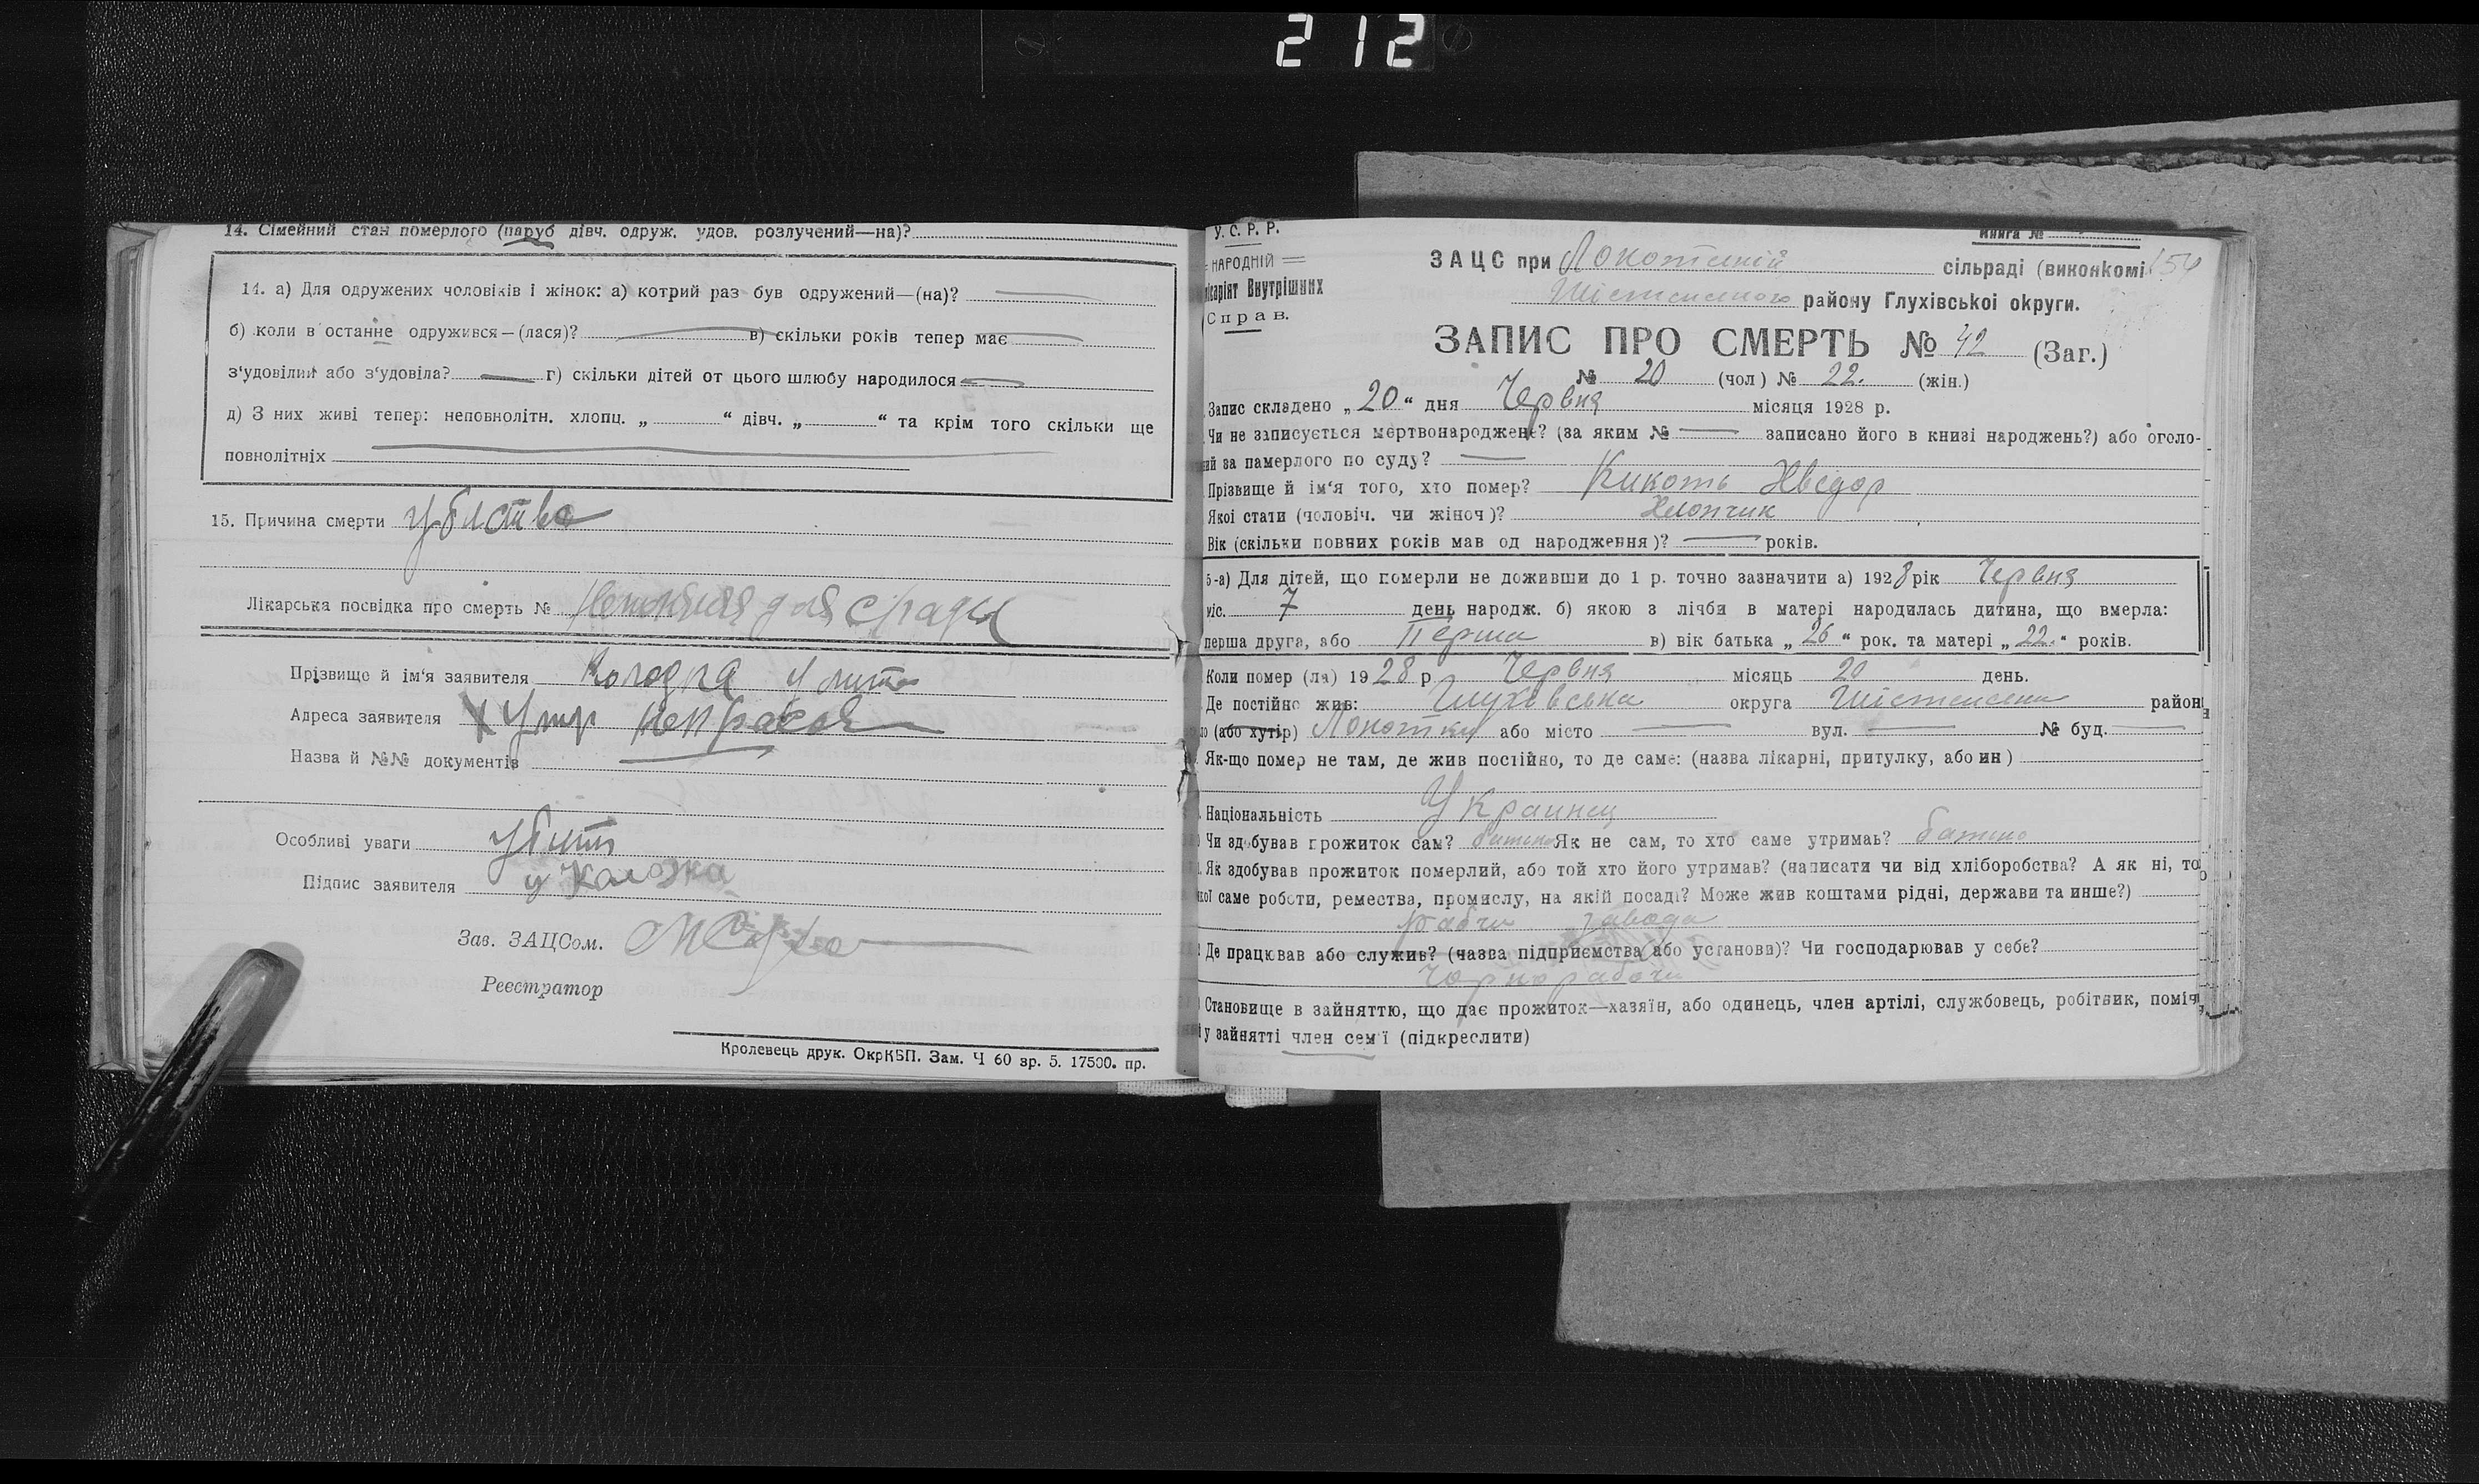 212
14. Сімейний стан померлого (паруб дівч. одруж. удов. розлучений—на)?
14. а) Для одружених чоловіків і жінок: а) котрий раз був одружений—(на)?
б) коли в останне одружився—(лася)? в) скільки років тепер має
з'удовілий або з'удовіла? г) скільки дітей от цього шлюбу народилося
д) З них живі тепер: неповнолітн. хлопц. „ “ дівч. „ “ та крім того скільки ще
повнолітніх
15. Причина смерти убиство
Лікарська посвідка про смерть №
Прізвище й ім'я заявителя
Адреса заявителя Хутір
Назва й №№ документів
Особливі уваги убит
Підпис заявителя
Зав. ЗАЦСом.
Реєстратор
Кролевець друк. ОкрКВП. Зам. Ч 60 зр. 5. 17500. пр.
У. С. Р. Р.
НАРОДНІЙ
Внутрішних
Справ.
Книга №
154
ЗАЦС при сільраді (виконкомі
району Глухівської округи.
ЗАПИС ПРО СМЕРТЬ № 42 (Заг.)
№ 20 (чол) № 22. (жін.)
Запис складено „20“ дня Червня місяця 1928 р.
Чи не записується мертвонароджене? (за яким № записано його в книзі народжень?) або оголо-
за памерлого по суду?
Прізвище й ім'я того, хто помер? Кикоть Хведор
Якої стати (чоловіч. чи жіноч)? Хлопчик
Вік (скільки повних років мав од народження)? років.
5-а) Для дітей, що померли не доживши до 1 р. точно зазначити а) 1928 рік Червня
міс. 7 день народж. б) якою з лічби в матері народилась дитина, що вмерла:
перша друга, або Перша в) вік батька „26“ рок. та матері „22.“ років.
Коли помер (ла) 1928 р Червня місяць 20 день.
Де постійно жив: Глухівська округа район
(або хутір) Локотки або місто вул. № буд.
Як-що помер не там, де жив постійно, то де саме: (назва лікарні, притулку, або ин)
Національність Украинец
Чи здобував прожиток сам? батько Як не сам, то хто саме утримав? батько
Як здобував прожиток померлий, або той хто його утримав? (написати чи від хліборобства? А як ні, то
саме роботи, ремества, промислу, на якій посаді? Може жив коштами рідні, держави та инше?)
рабчи завода
Де працював або служив? (назва підприємства або установи)? Чи господарював у себе?
чорнорабочи
Становище в зайняттю, що дає прожиток—хазяїн, або одинець, член артілі, службовець, робітник, поміч
у зайнятті член сем'ї (підкреслити)